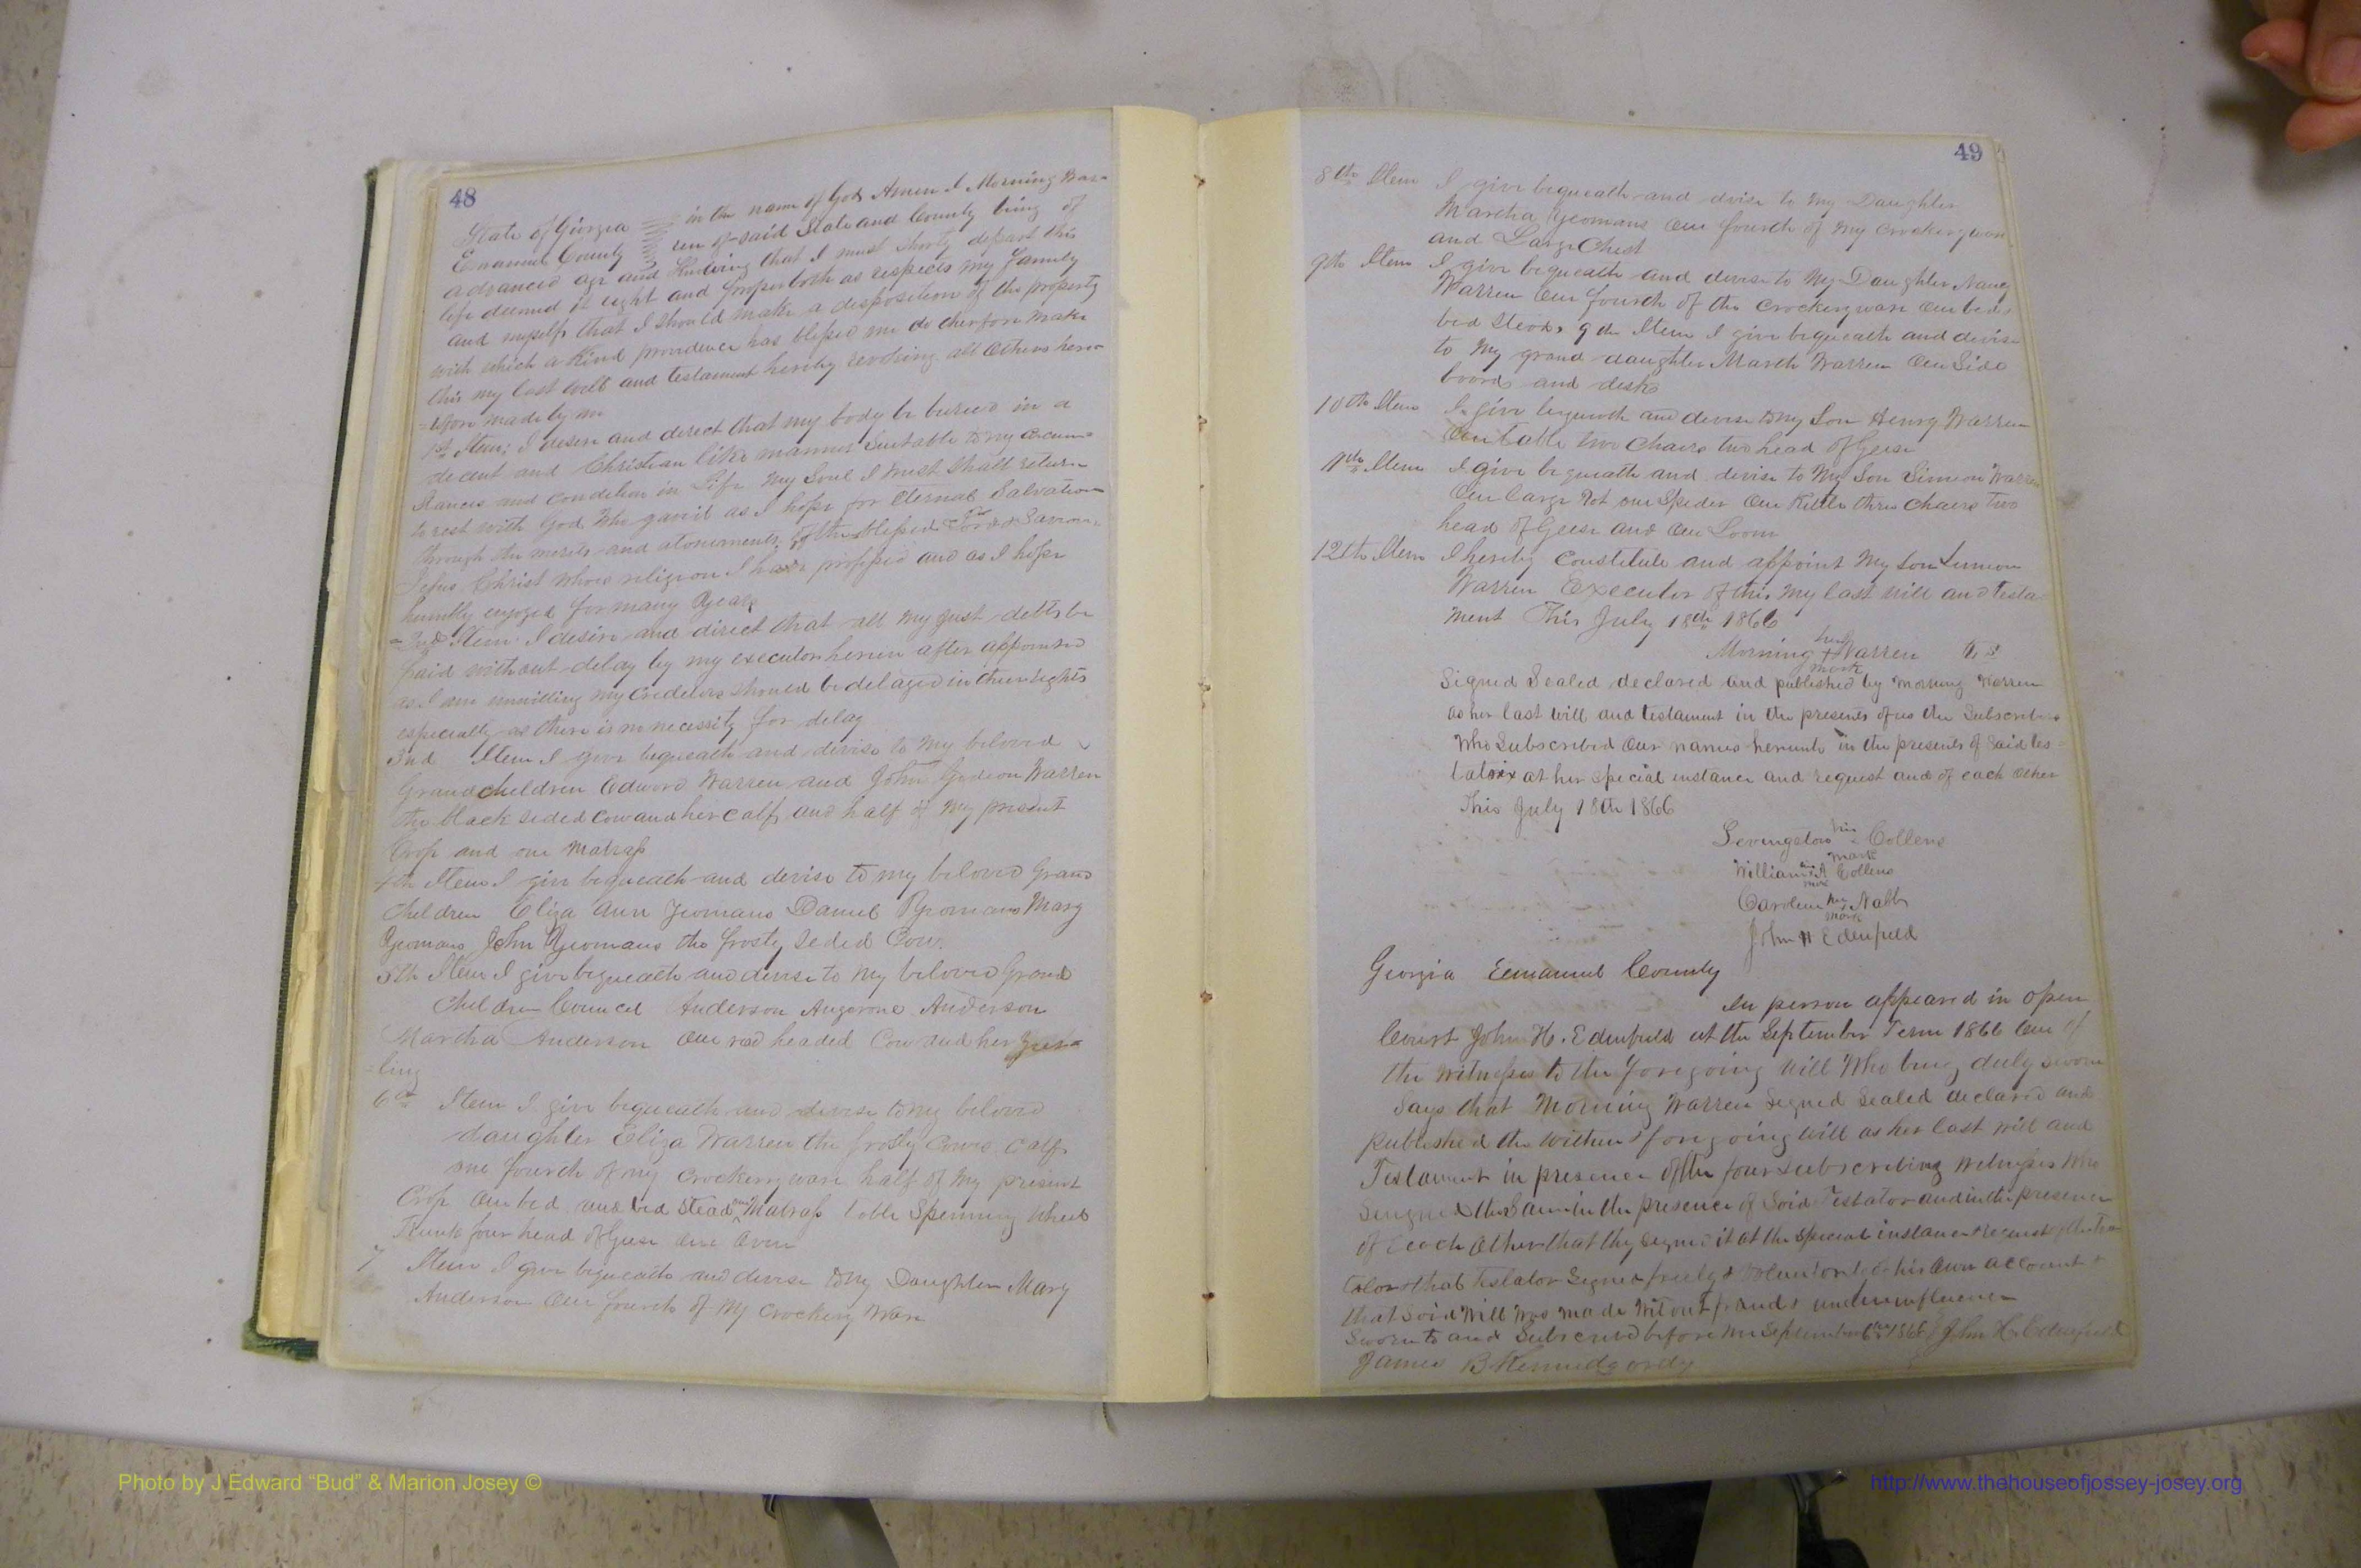 48
State of Georgia in the name of God Amen I Morning War-
Emanuel County ren of said State and County being of
advanced age and Knowing that I must shortly depart this
life deemed it right and proper both as respects my family
and myself that I should make a disposition of the property
with which a Kind providence has blessed me do therefore make
this my last will and testament hereby revoking all others here
=tofore made by me
1st Item: I desire and direct that my body be buried in a
decent and Christian like manner Suitable to my circum=
stances and condition in Life my Soul I trust shall return
to rest with God who gave it as I hope for Eternal Salvation
through the merits and atonements of the blessed Lord & Saviour
Jesus Christ whose religion I have professed and as I hope
humbly enjoyed for many years
2nd Item I desire and direct that all my just debts be
paid without delay by my executor herein after appointed
as I am unwilling my Creditors should be delayed in their rights
especially as there is no necessity for delay
3nd Item I give bequeath and devise to my beloved
Grandchildren Edward Warren and John Gideon Warren
the black sided Cow and her calf and half of my present
Crop and one Matrass
4th Item I give bequeath and devise to my beloved Grand
Children Eliza Ann Yeomans Daniel Yeomans Mary
Yeomans John Yeomans the frosty seded Cow.
5th Item I give bequeath and devise to my beloved Grand
Children Council Anderson Angerone Anderson
Martha Anderson One red headed Cow and her year=
=ling
6th Item I give bequeath and devise to my beloved
daughter Eliza Warren the frosty Cows Calf
one fourth of my Crockeryware half of my present
Crop One bed and bed stead one Matrass table Spenning Wheel
Trunk four head of Geese One Oven
7 Item I give bequeath and devise to my Daughter Mary
Anderson One fourth of My Crockery Ware
49
8th Item I give bequeath and devise to My Daughter
Martha Yeomans One fourth of My Crockeryware
and Large Chest
9th Item I give bequeath and devise to My Daughter Nancy
Warren One fourth of the Crockeryware One bed,
bed Steads 9th Item I give bequeath and devise
to My grand daughter Marth Warren One Side
board and desk
10th Item I give bequeath and devise to My Son Henry Warren
One table two Chairs two head of Geese
11th Item I give bequeath and devise to My Son Simeon Warren
One large Pot one Speder One Kittle three Chairs two
head of Geese and One Loom
12th Item I hereby Constitute and appoint My Son Simeon
Warren Executor of this My last will and testa=
ment This July 18th 1866
her
Morning + Warren
mark
Signed Sealed declared and published by Morning Warren
as her last will and testament in the presents of us the Subscribers
Who Subscribed Our names herunto in the presents of Said tes=
tatrix at her special instance and request and of each Other
This July 18th 1866
his
Levingston Collens
mark
William A Collens
Caroline her Nabb
mark
John H Edenfield
Georgia Eemanuel County
In person appeared in Open
Court John H. Edenfield at the September Term 1866 One of
the Witnesses to the foregoing Will Who being duly sworn
Says that Morning Warren Segned Sealed declared and
published the within & foregoing Will as her last Will and
Testament in presence of the four subscribing Witnesses Who
Seigned the Same in the presence of Said Testator and in the presence
of Each Other that they segned it at the special instance & request of the Tes
tator & that Testator Signed freely & Voluntarily of his Own account &
that Said Will was made without fraud & undue influence
Sworn to and Subscribed before me September 1866 John H. Edenfield
James B Kennedy ordy
Photo by J Edward “Bud” & Marion Josey ©
http://www.thehouseofjossey-josey.org